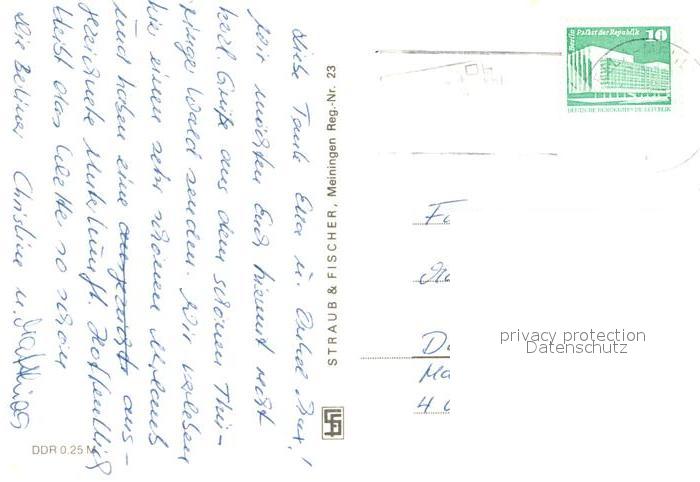 Liebe Tante Ella u. Onkel Max!
Wir möchten Euch hiermit recht
herzl. Grüße aus dem schönen Thü-
ringer Wald senden. Wir verleben
hier einen sehr schönen Urlaub
und haben eine ausgezeichn aus-
gezeichnete Unterkunft. Hoffentlich
bleibt das Wetter so schön
Die Berliner Christine u.
DDR 0.25 M
STRAUB & FISCHER, Meiningen Reg.-Nr. 23
Berlin Palast der Republik 10
DEUTSCHE DEMOKRATISCHE REPUBLIK
privacy protection
Datenschutz